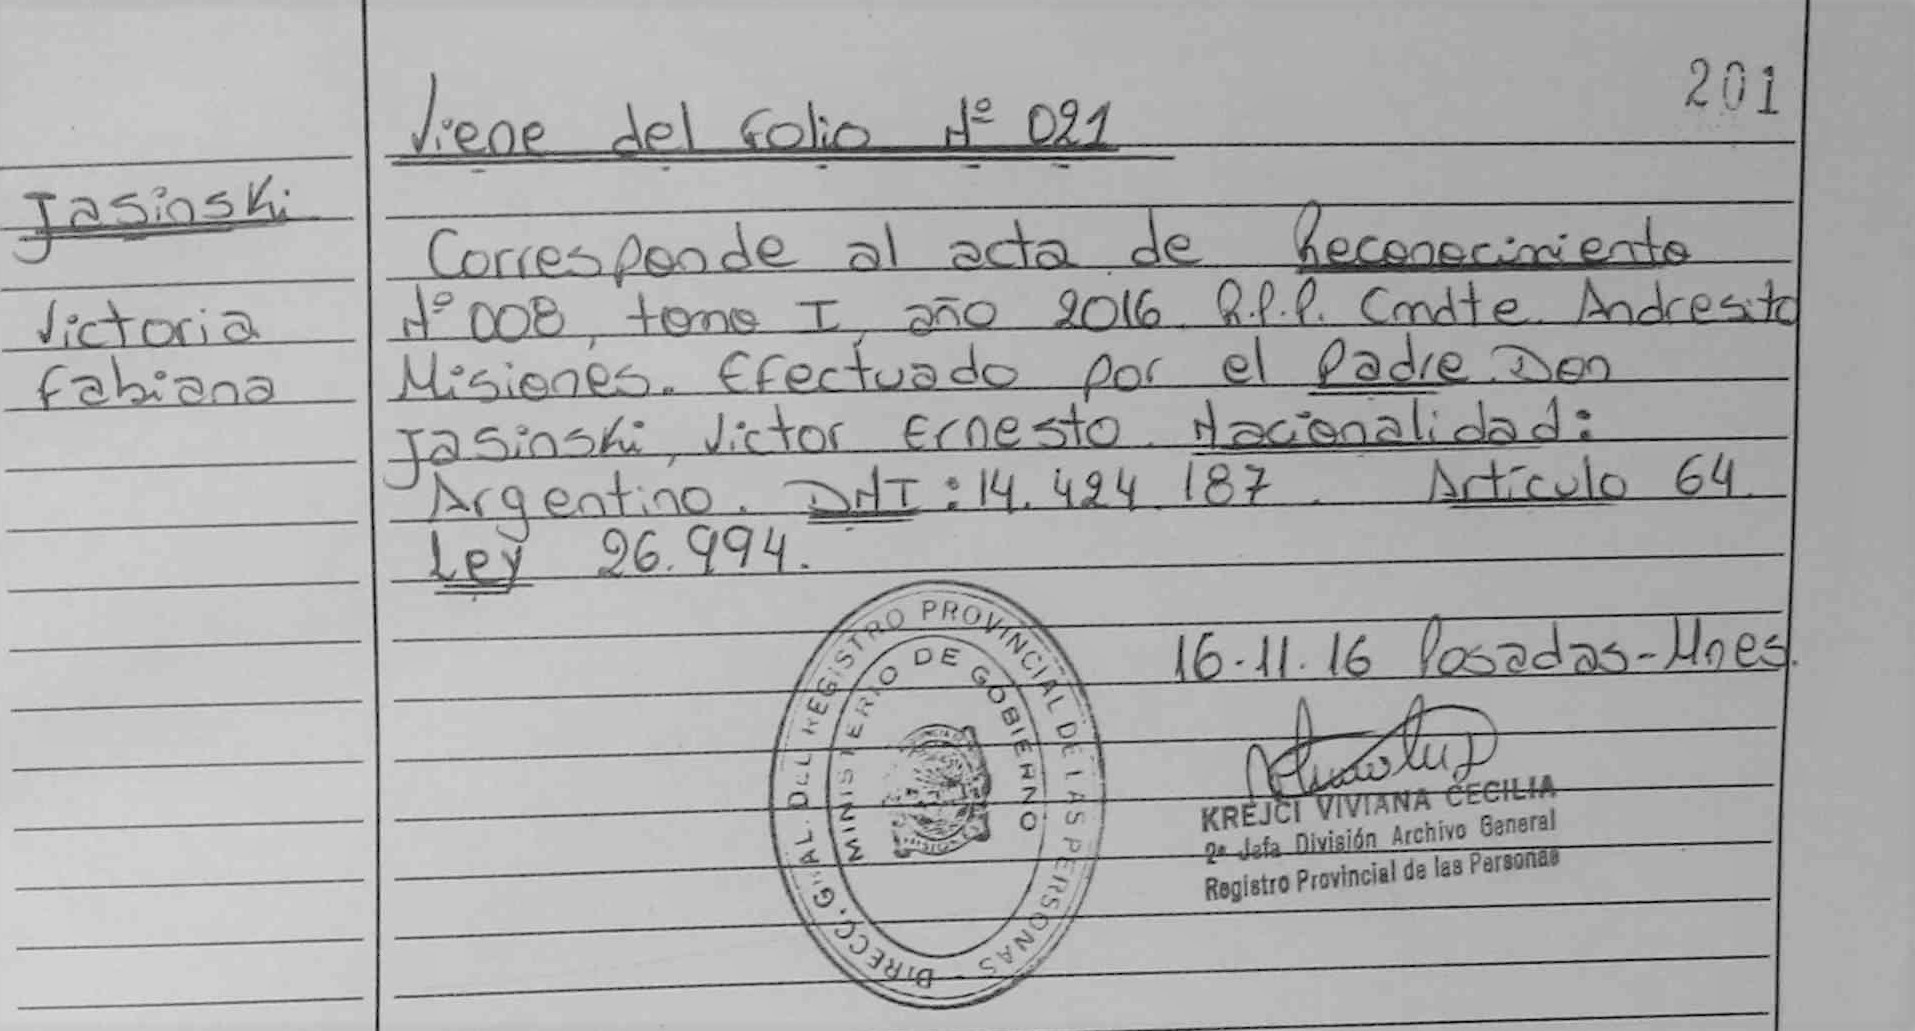 201
Viene del folio Nº 021
Jasinski
Victoria
Fabiana
Corresponde al acta de Reconocimiento
Nº 008, tomo I, año 2016. R.P.P. Cmdte. Andresito
Misiones. Efectuado por el Padre. Don
Jasinski, Victor Ernesto. Nacionalidad:
Argentino. DNI: 14.424.187. Artículo 64.
Ley 26.994.
16-11.16 Posadas-Mnes.
DIRECC. GRAL. DEL REGISTRO PROVINCIAL DE LAS PERSONAS -
MINISTERIO DE GOBIERNO
KREJCI VIVIANA CECILIA
2ª Jefa División Archivo General
Registro Provincial de las Personas